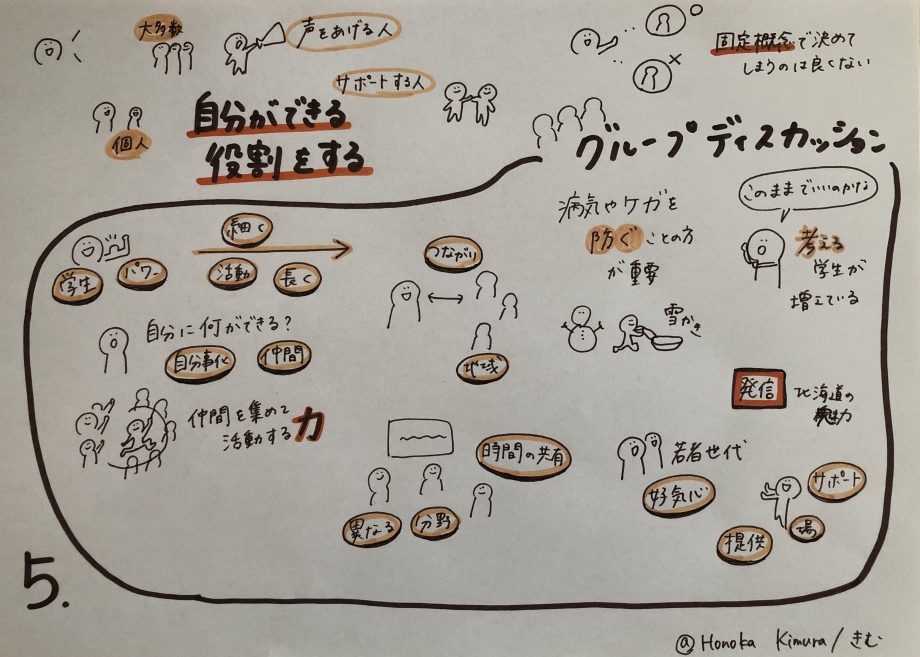 大多数
声をあげる人
サポートする人
個人
自分ができる
役割をする
固定概念で決めて
しまうのは良くない
グループディスカッション
学生
パワー
細く
活動
長く
自分に何ができる?
自分事化
仲間
仲間を集めて
活動する力
つながり
地域
時間の共有
異なる
分野
病気やケガを
防ぐことの方
が重要
雪かき
このままでいいのかな
考える
学生が
増えている
発信
北海道の
魅力
若者世代
好気心
サポート
場
提供
5.
@Honoka Kimura/きむ